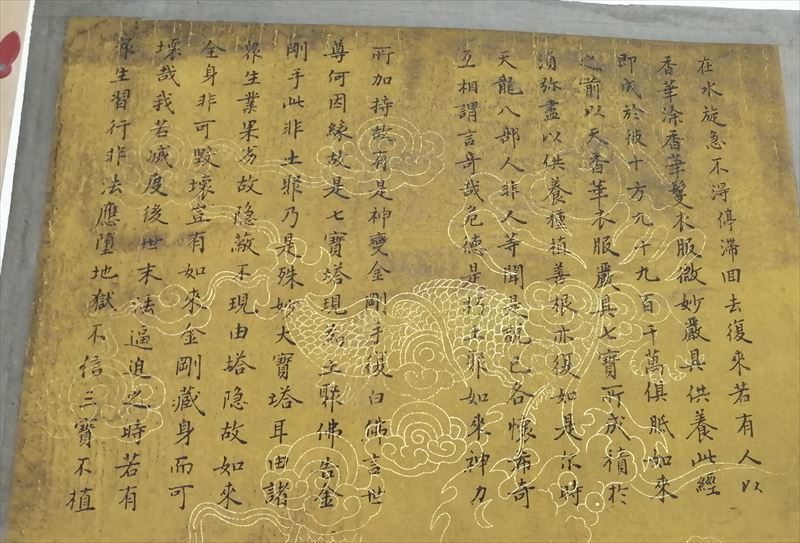 在水旋急不得停滯回去復來若有人以
香華塗香華鬘衣服微妙嚴具供養此經
即成於彼十方九十九百千萬俱胝如來
之前以天香華衣服嚴具七寶所成積於
須弥盡以供養種植善根亦復如是尒時
天龍八部人非人等聞是說已各懷希奇
互相謂言奇哉危德是朽土耶如來神力
所加持故有是神變金剛手復白佛言世
尊何因緣故是七寶塔現為土聚佛告金
剛手此非土聚乃是殊妙大寶塔耳由諸
衆生業果劣故隐蔽不現由塔隐故如來
全身非可毀壞豈有如來金剛藏身而可
壞哉我若滅度後世末法逼迫之時若有
衆生習行非法應墮地獄不信三寶不植